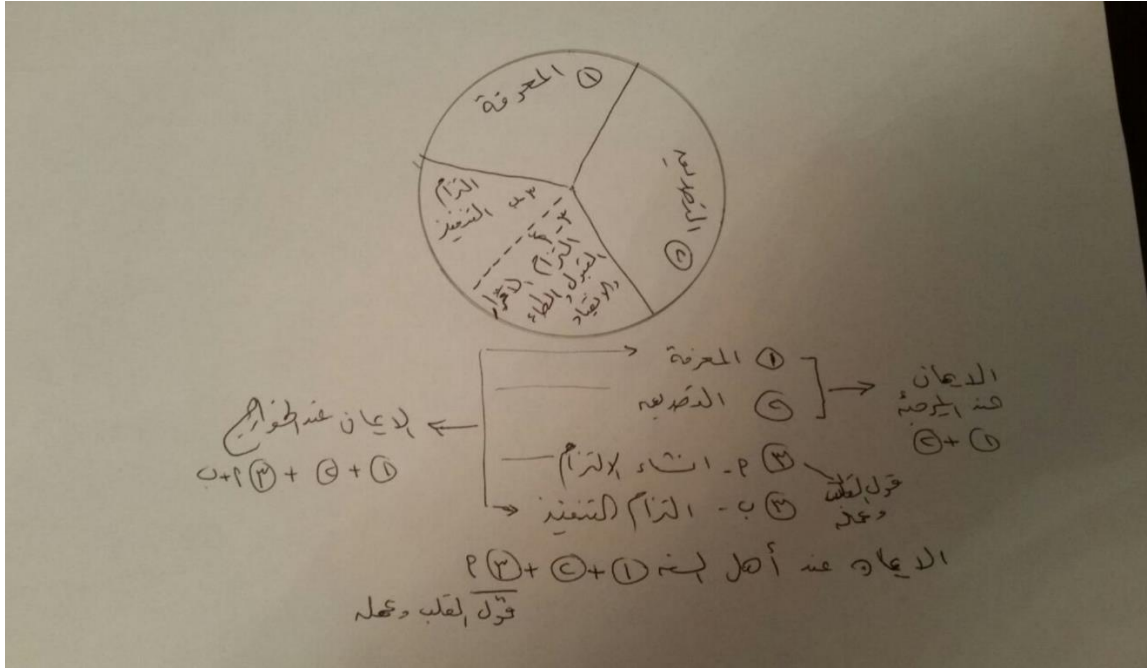 ① المعرفة
التصديق
②
٣ب
التزام
التنفيذ
٣
التزام
القبول
والانقياد
① المعرفة
② التصديق
③ أ- انشاء الالتزام
③ ب- التزام التنفيذ
الايمان
عند المرجئة
① + ②
الايمان عند الخوارج
① + ② + ③ أ+ب
قول القلب
وعمله
الايمان عند أهل السنة ① + ② + ③ أ
قول القلب وعمله